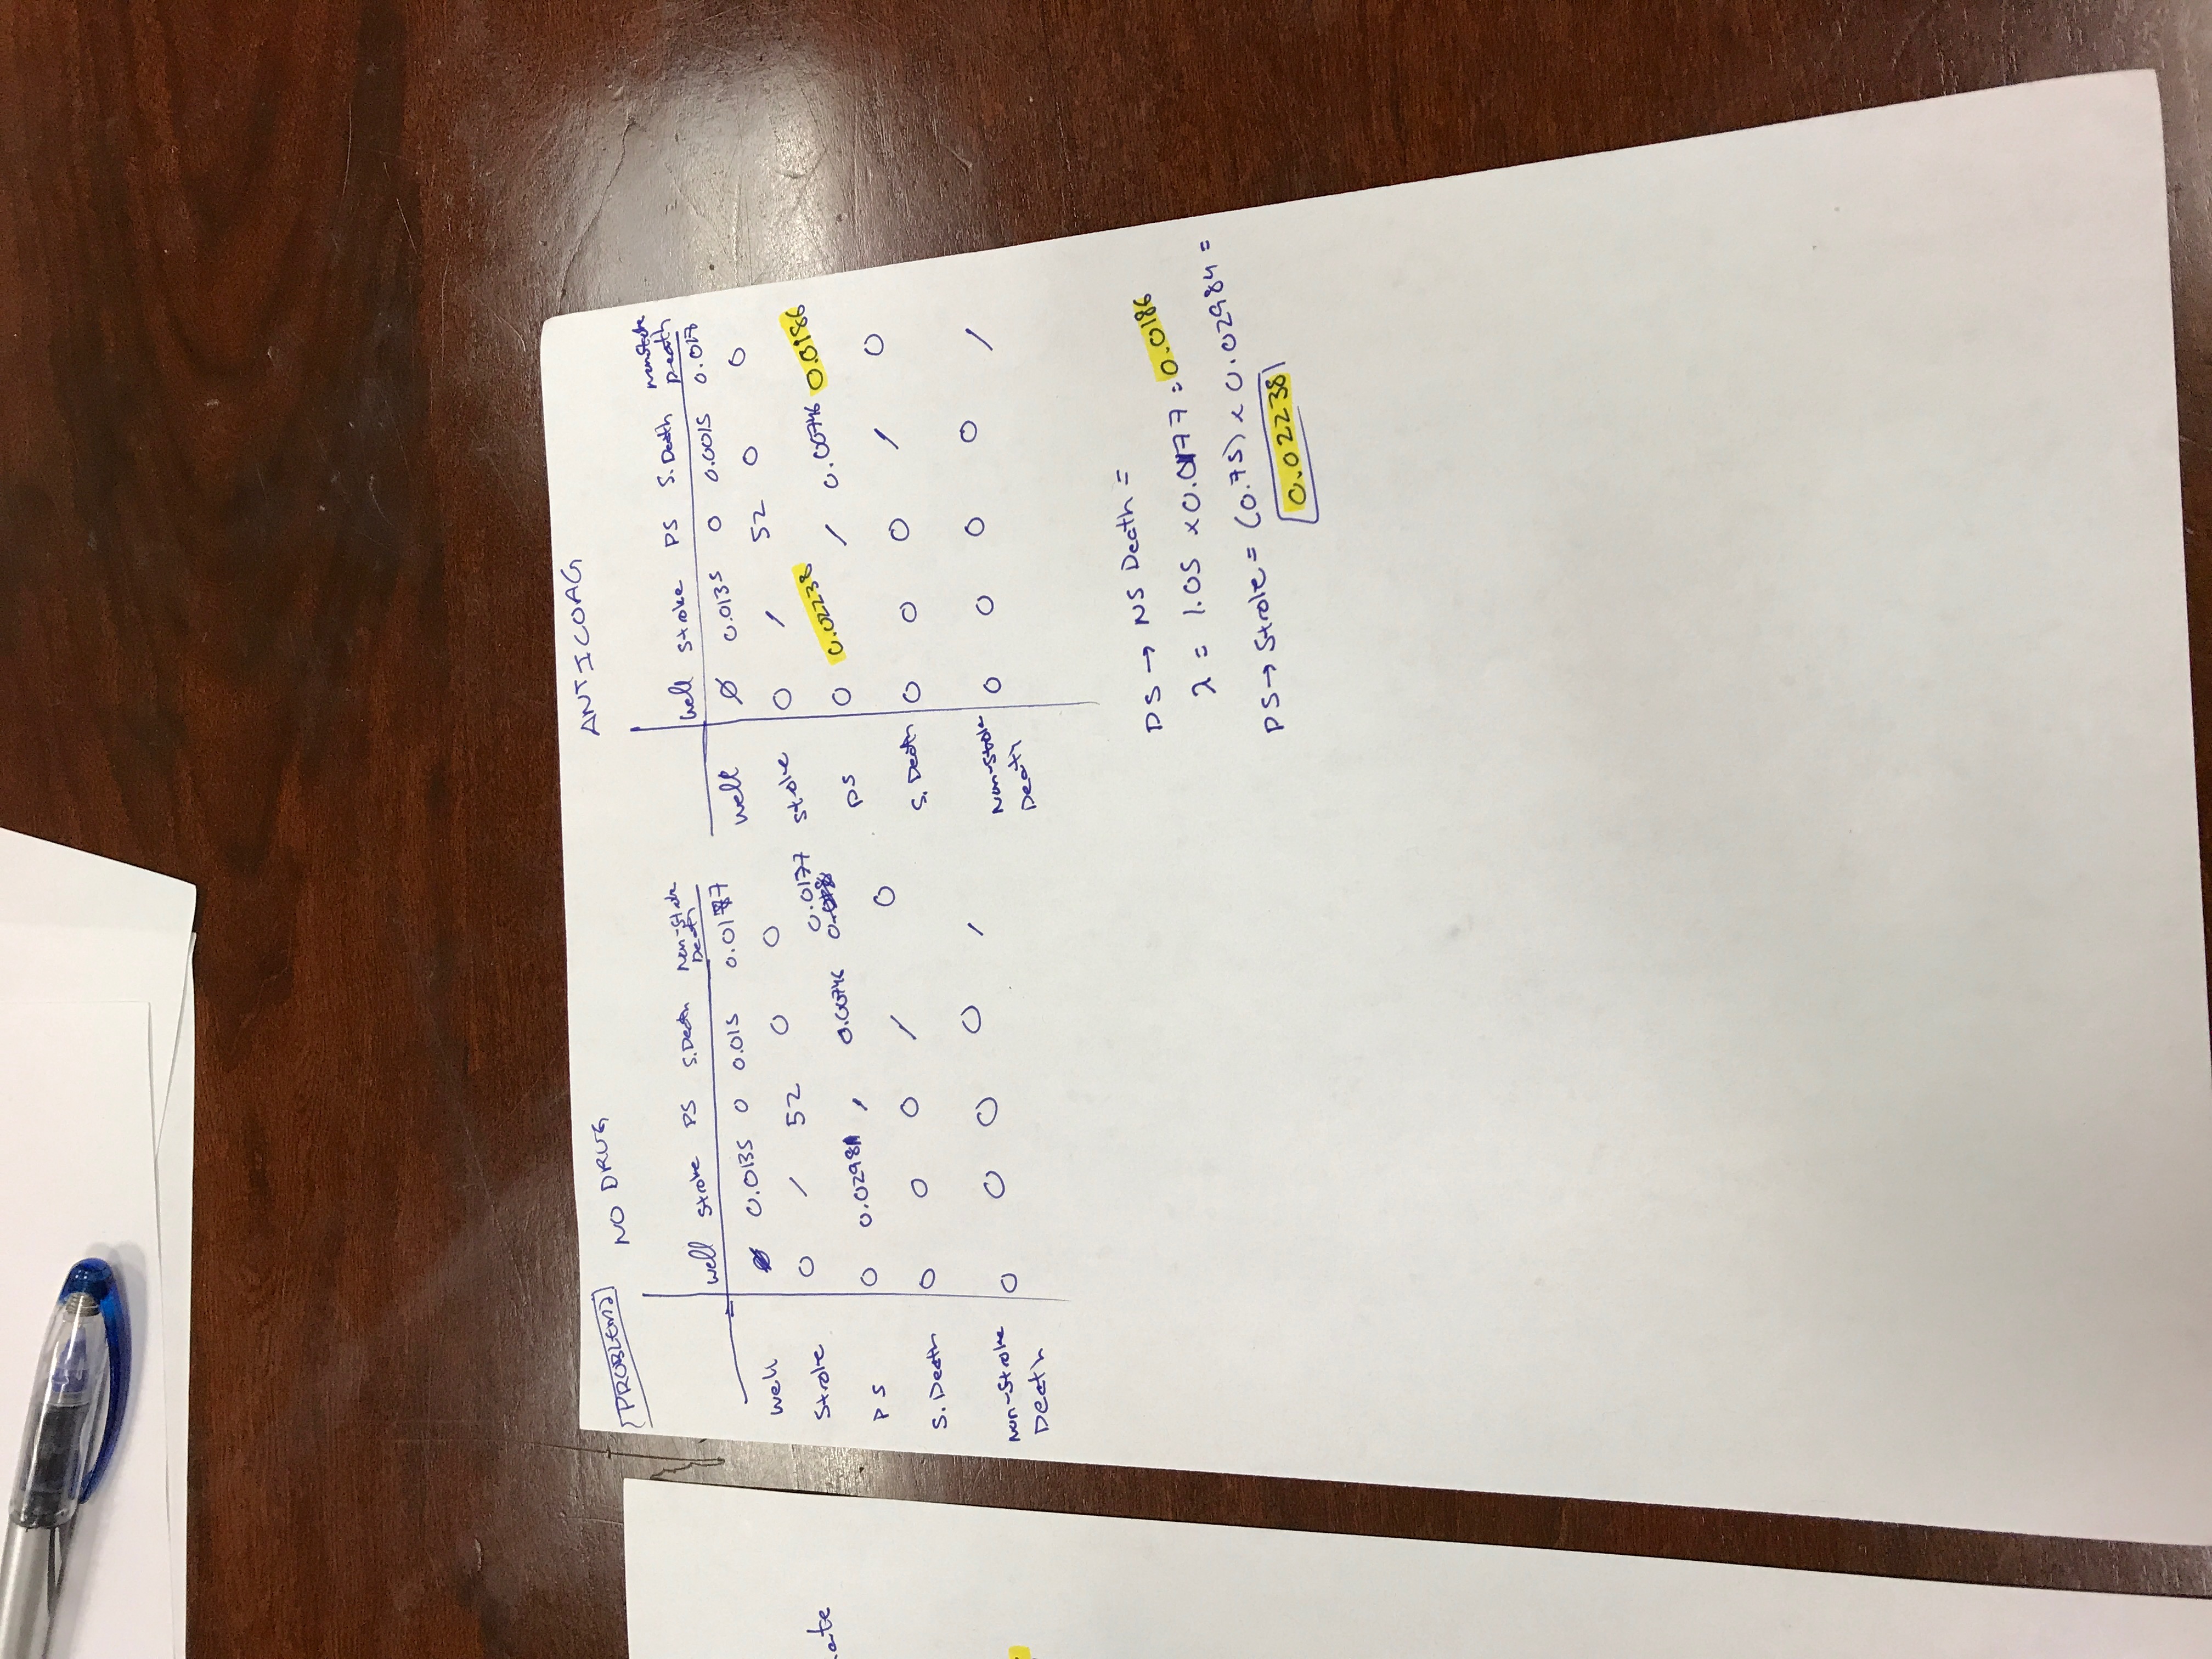 PROBLEM 2
NO DRUG
well stroke PS S.Death Non-Stroke Death
well 0.0135 0 0.015 0.0177
Stroke 0 / 52 0 0
PS 0 0.02984 / 0.00746 0.0177
S. Death 0 0 0 / 0
Non-Stroke Death 0 0 0 0 /
ANTICOAG
well stroke PS S. Death nonstroke Death
well Ø 0.0135 0 0.0015
stroke 0 / 52 0 0
PS 0 0.02238 / 0.00746 0.0186
S. Death 0 0 0 / 0
Non-Stroke Death 0 0 0 0 /
PS → NS Death =
λ = 1.05 × 0.0177 = 0.0186
PS → Stroke = (0.75) × 0.02984 =
0.02238